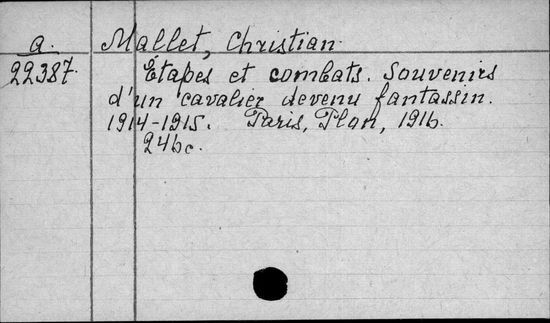 a. Mallet, Christian.
22387. Etapes et combats. Souvenirs
d'un cavalier devenu fantassin.
1914-1915. Paris, Plon, 1916.
246c.